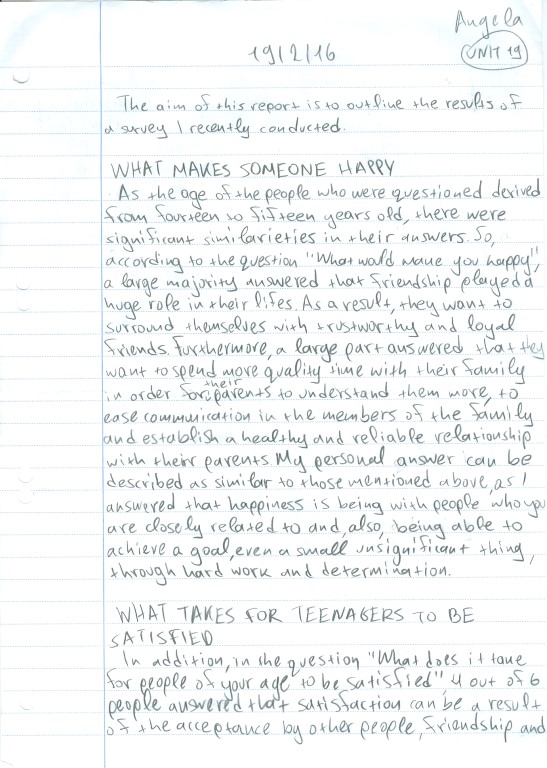 Angela
19/2/16
UNIT 19
The aim of this report is to outline the results of
a survey I recently conducted.
WHAT MAKES SOMEONE HAPPY
As the age of the people who were questioned derived
from fourteen to fifteen years old, there were
significant similarieties in their answers. So,
according to the question "What would make you happy",
a large majority answered that friendship played a
huge role in their lifes. As a result, they want to
surround themselves with trustworthy and loyal
friends. Furthermore, a large part answered that they
want to spend more quality time with their family
in order for their parents to understand them more, to
ease communication in the members of the family
and establish a healthy and reliable relationship
with their parents. My personal answer can be
described as similar to those mentioned above, as I
answered that happiness is being with people who you
are closely related to and, also, being able to
achieve a goal, even a small unsignificant thing,
through hard work and determination.
WHAT TAKES FOR TEENAGERS TO BE
SATISFIED
In addition, in the question "What does it take
for people of your age to be satisfied", 4 out of 6
people answered that satisfaction can be a result
of the acceptance by other people, friendship and